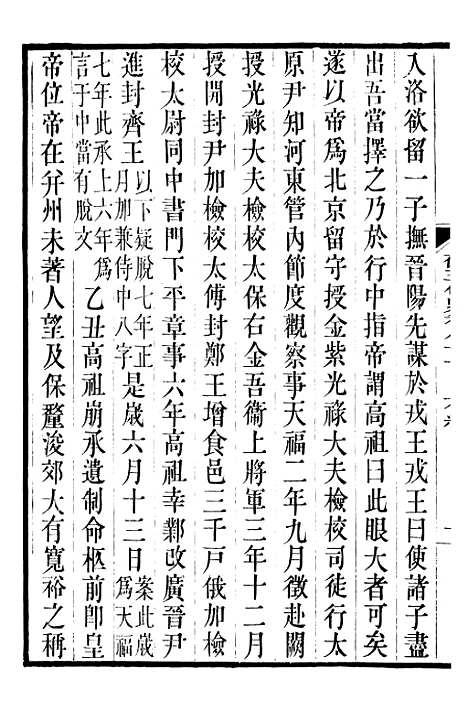 入洛欲留一子撫晉陽先謀於戎王戎王曰使諸子盡
出吾當擇之乃於行中指帝謂高祖曰此眼大者可矣
遂以帝爲北京留守授金紫光祿大夫檢校司徒行太
原尹知河東管內節度觀察事天福二年九月徵赴闕
授光祿大夫檢校太保右金吾衞上將軍三年十二月
授開封尹加檢校太傅封鄭王增食邑三千戸俄加檢
校太尉同中書門下平章事六年高祖幸鄴改廣晉尹
進封齊王以下疑脫七年正月加兼侍中八字是歲六月十三日案此歲爲天福
七年此承上六年爲言于中當有脫文乙丑高祖崩承遺制命柩前卽皇
帝位帝在并州未著人望及保釐浚郊大有寬裕之稱